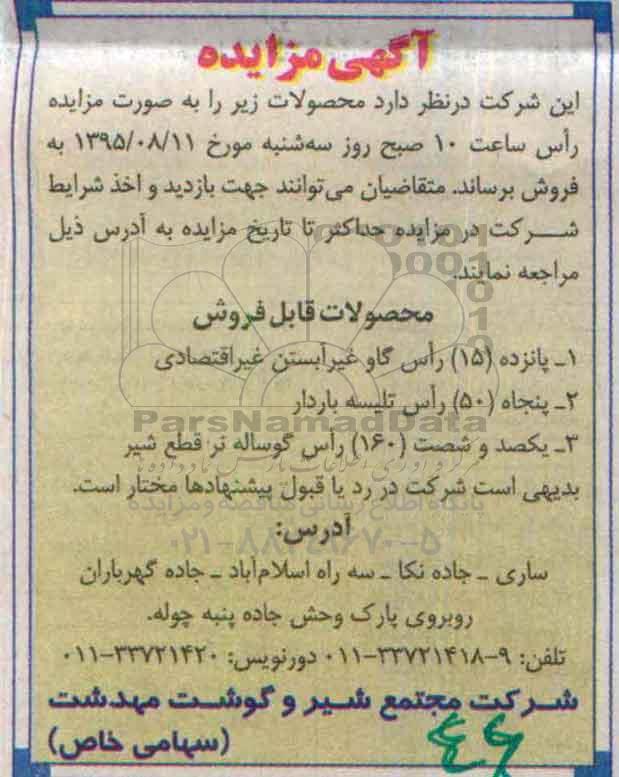 آگهی مزایده
این شرکت درنظر دارد محصولات زیر را به صورت مزایده
رأس ساعت ۱۰ صبح روز سه‌شنبه مورخ ۱۳۹۵/۰۸/۱۱ به
فروش برساند. متقاضیان می‌توانند جهت بازدید و اخذ شرایط
شـــرکت در مزایده حداکثر تا تاریخ مزایده به آدرس ذیل
مراجعه نمایند.
محصولات قابل فروش
۱ـ پانزده (۱۵) رأس گاو غیرآبستن غیراقتصادی
۲ـ پنجاه (۵۰) رأس تلیسه باردار
ParsNamadData
۳ـ یکصد و شصت (۱۶۰) رأس گوساله نر قطع شیر
بدیهی است شرکت در رد یا قبول پیشنهادها مختار است.
پایگاه اطلاع رسانی مناقصه و مزایده
آدرس:
۰۲۱-۸۸۳۴۹۶۷۰-۵
ساری ـ جاده نکا ـ سه راه اسلام‌آباد ـ جاده گهرباران
روبروی پارک وحش جاده پنبه چوله.
تلفن: ۹-۳۳۷۲۱۴۱۸-۰۱۱ دورنویس: ۳۳۷۲۱۴۲۰-۰۱۱
شـرکت مجتمع شـیر و گوشـت مهدشت
(سهامی خاص)